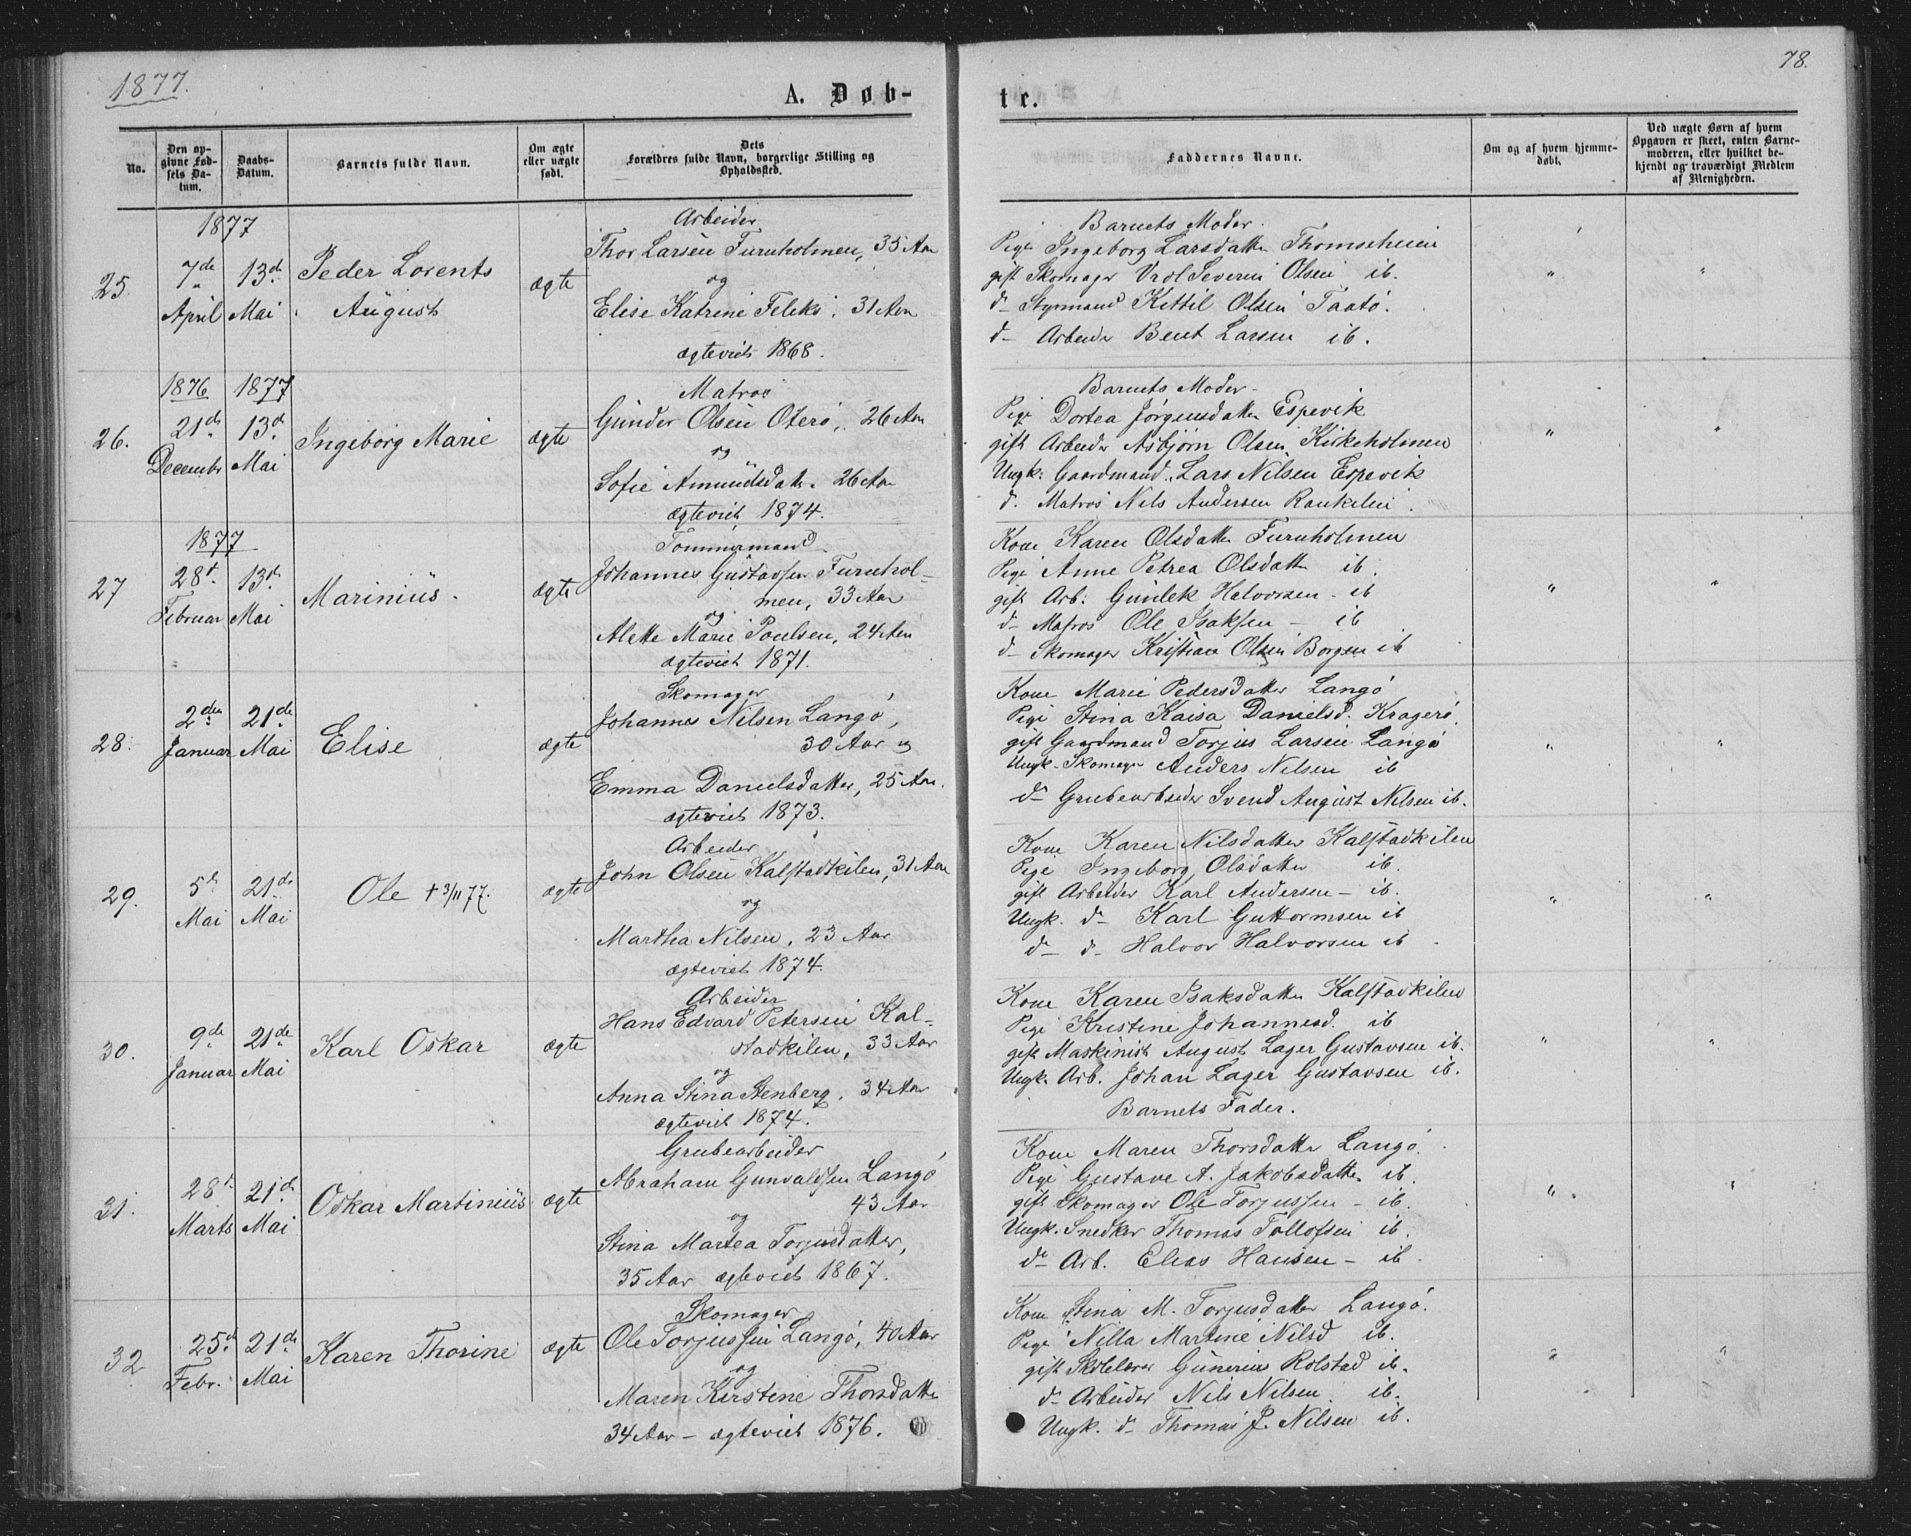 1877.
A. Døb-
No.
Den op-
givne Fød-
sels Da-
tum.
Daabs-
Datum.
Barnets fulde Navn.
Om ægte
eller uægte
født.
Dets
Forældres fulde Navn, borgerlige Stilling og
Opholdssted.
1877
25.
7de April
13de Mai
Peder Lorents
August
ægte
Arbeider
Thor Larsen Furuholmen, 35 Aar
og
Elise Katrine Feleks. 31 Aar
ægteviet 1868.
1876 1877
26.
21de Decembr
13de Mai
Ingeborg Marie
ægte
Matros
Gunder Olsen Oterø, 26 Aar
og
Sofie Amundsdatr. 26 Aar
ægteviet 1874.
1877
27
28de Februar
13de Mai
Marinius.
ægte
Tømmermand
Johannes Gustavsen Furuhol-
men, 33 Aar
og
Alette Marie Poulsen, 24 Aar
ægteviet 1871.
28.
2den Januar
21de Mai
Elise
ægte
Skomager
Johannes Nilsen Langø,
30 Aar og
Emma Danielsdatter, 25 Aar.
ægteviet 1873.
29.
5te Mai
21de Mai
Ole +3/11 77.
ægte
Arbeider
John Olsen Kalstadkilen, 31 Aar
og
Martha Nilsen, 23 Aar
ægteviet 1874.
30.
9de Januar
21de Mai
Karl Oskar
ægte
Arbeider
Hans Edvard Petersen Kal-
stadkilen, 33 Aar
og
Anna Stina Stenberg, 34 Aar
ægteviet 1874.
31.
28de Marts
21de Mai
Oskar Martinius
ægte
Grubearbeider
Abraham Gunvaldsen Langø
43 Aar
og
Stina Martea Torjusdatter,
35 Aar ægteviet 1867.
32
25de Febr.
21de Mai
Karen Thorine
ægte
Skomager
Ole Torjussen Langø, 40 Aar
og
Maren Kirstine Thorsdatte
34 Aar – ægteviet 1876.
78.
te.
Faddernes Navne.
Om og af hvem hjemme-
døbt.
Ved uægte Børn af hvem
Opgaven er skeet, enten Barne-
moderen, eller hvilket be-
kjendt og troværdigt Medlem
af Menigheden.
Barnets Moder.
Pige Ingeborg Larsdatter Thomseheien
gift Skomager Severin Olsen ib.
d– Styrmand Kittil Olsen Taatø.
d– Arbeider Bent Larsen ib.
" "
Barnets Moder.
Pige Dortea Jørgensdatter Espevik
gift Arbeider Asbjørn Olsen Kirkeholmen
Ungk. Gaardmand Lars Nilsen Espevik
d. Matros Nils Andersen
" "
Kone Karen Olsdatter Furuholmen
Pige Anne Petrea Olsdatter ib.
gift Arb. Gunlek Halvorsen – ib
d– Matros Ole Isaksen – ib
d– Skomager Kristian Olsen Borgen ib
" "
Kone Marie Pedersdatter Langø
Pige Stina Kaisa Danielsd. Kragerø.
gift Gaardmand Torjus Larsen Langø
Ungk. Skomager Anders Nilsen ib
d– Grubearbeider Svend August Nilsen ib.
" "
Kone Karen Nilsdatter Kalstadkilen
Pige Ingeborg Olsdatter ib.
gift Arbeider Karl Andersen – ib.
Ungk. d– Karl Guttormsen ib
d– d– Halvor Halvorsen ib
" "
Kone Karen Isaksdatter Kalstadkilen
Pige Kristine Johannesd. ib
gift Maskinist August Lager Gustavsen ib.
Ungk. Arb. Johan Lager Gustavsen ib.
Barnets Fader.
" "
Kone Maren Thorsdatter Langø.
Pige Gustave A. Jakobsdatter ib.
gift Skomager Ole Torjussen – ib.
Ungk. Snedker Thomas Tollofsen ib.
d– Arb. Elias Hansen – ib.
" "
Kone Stina M. Torjusdatter Langø.
Pige Nilla Martine Nilsd ib.
gift Skolelærer Gunerius Rolstad ib.
d– Arbeider Nils Nilsen ib.
Ungk. d– Thomas J. Nilsen ib.
" "